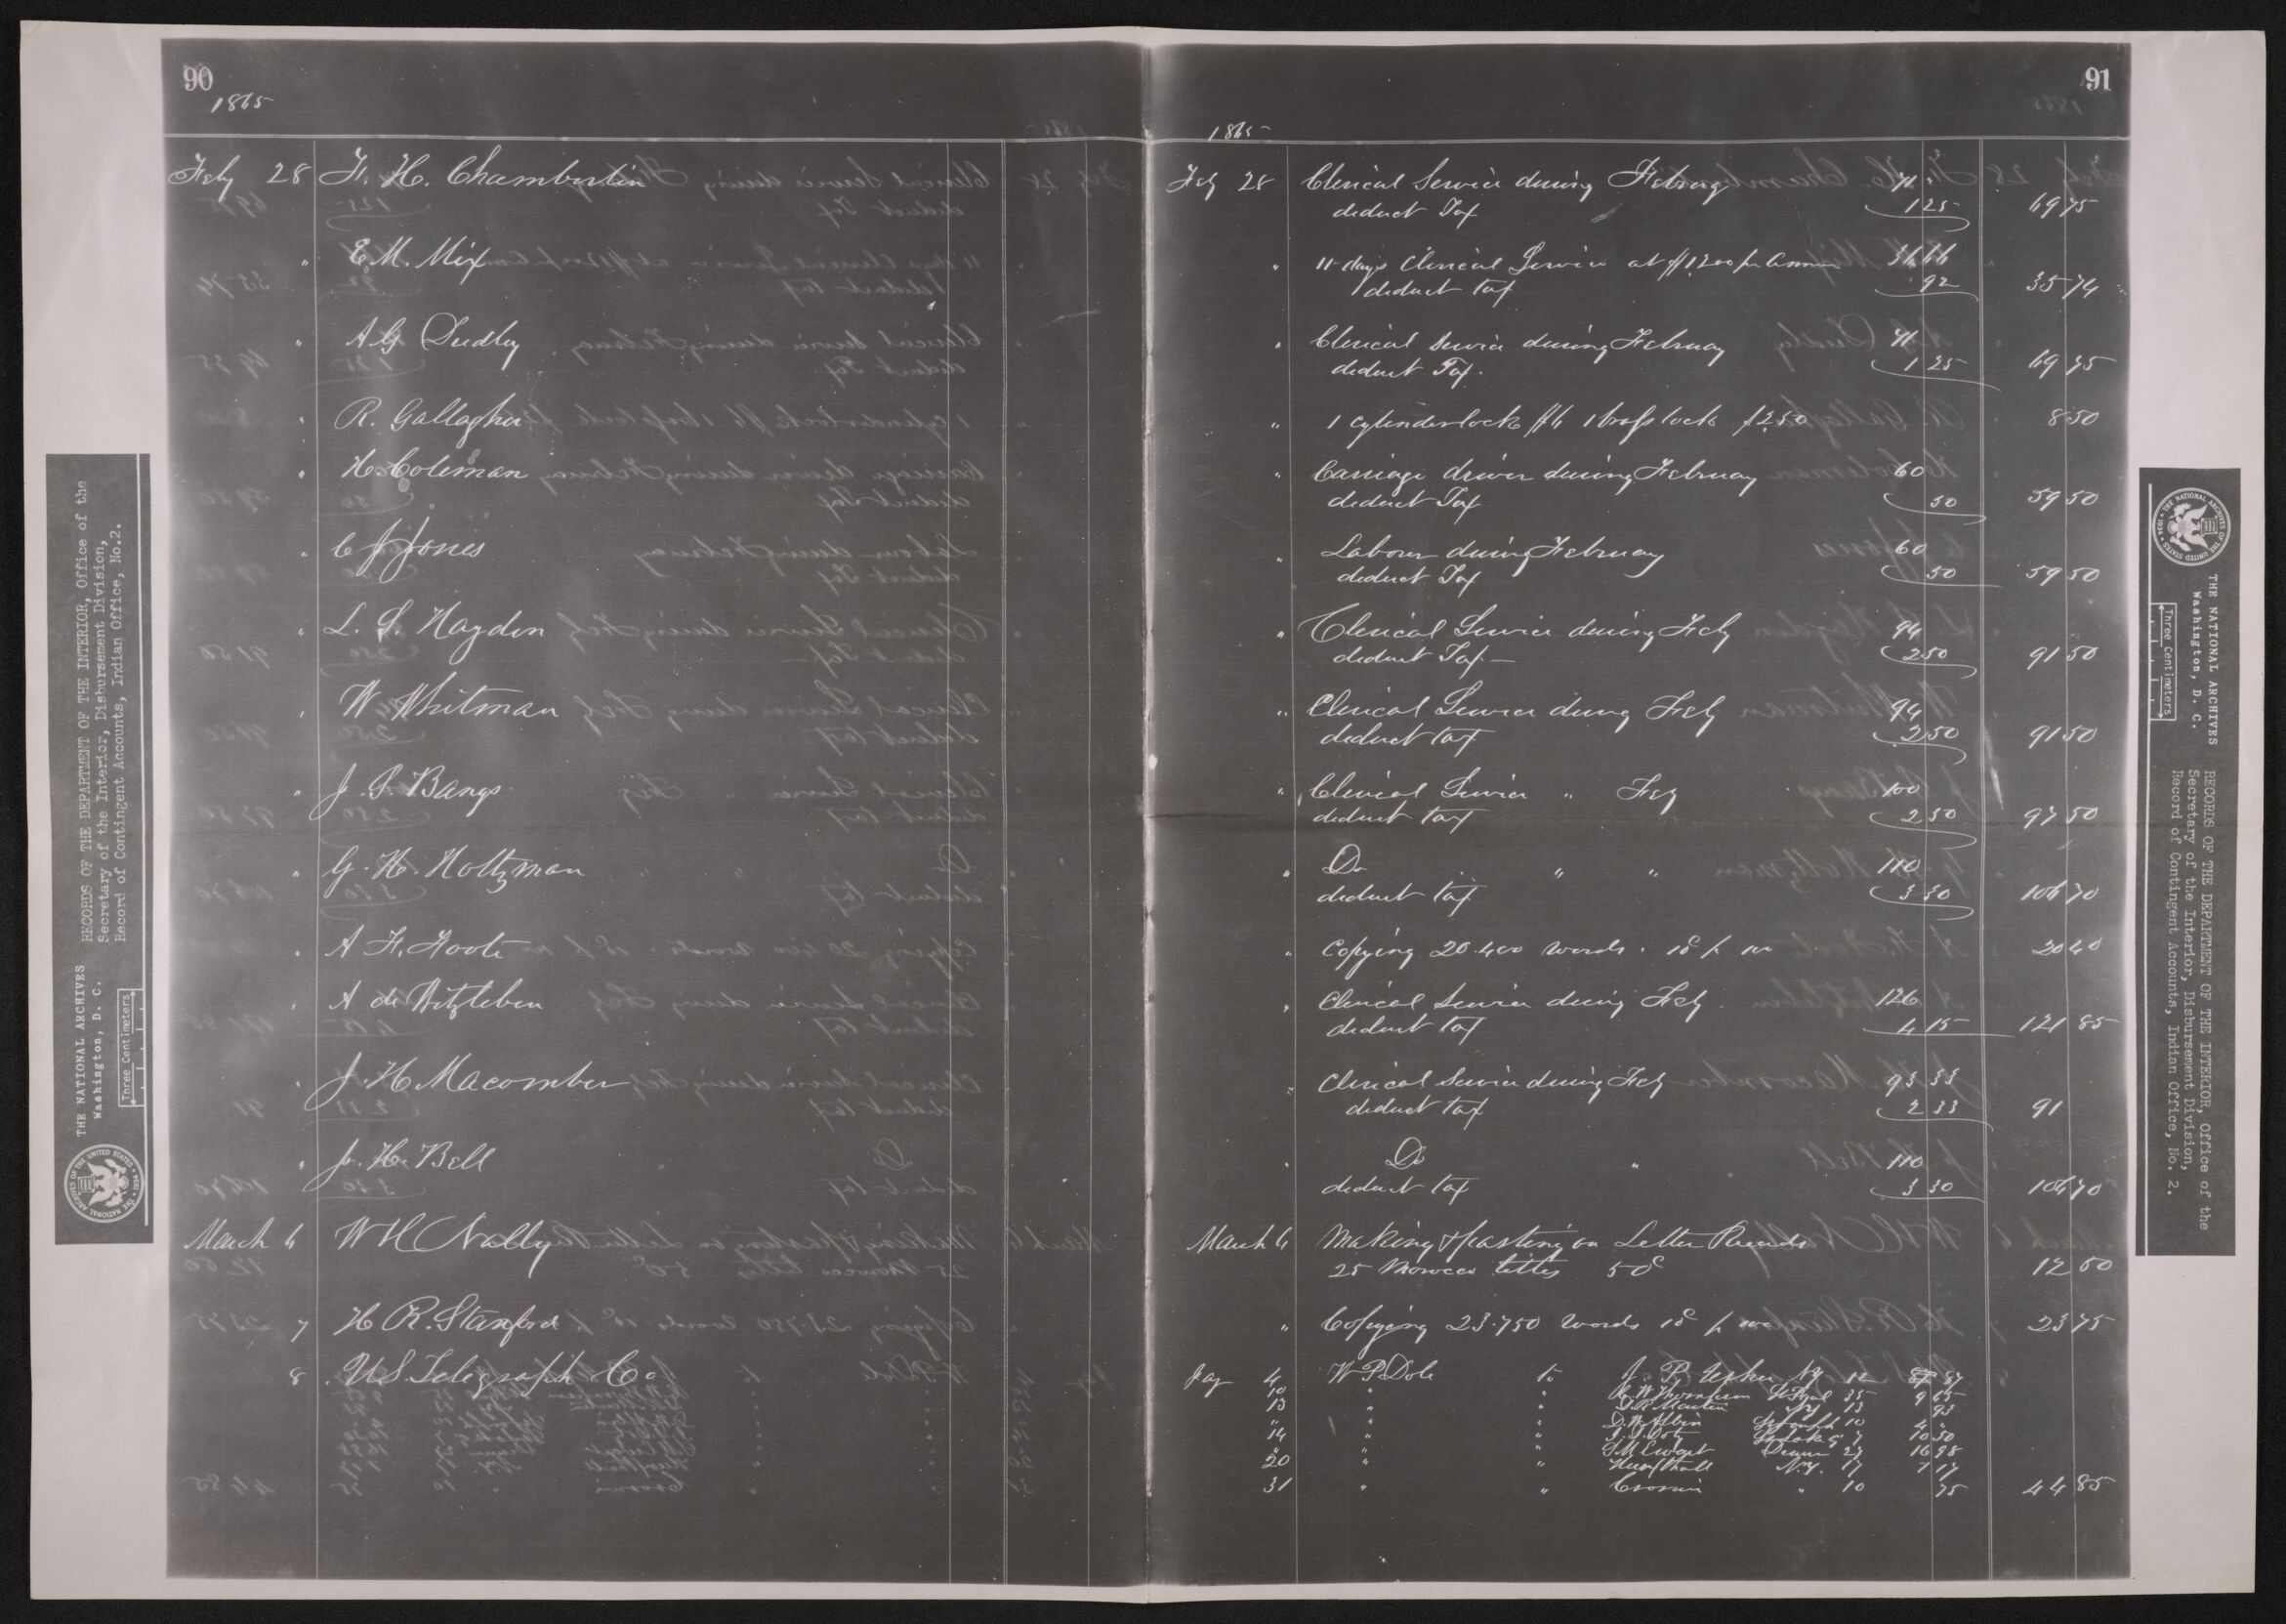 90
1865
Feby 28 F. H. Chamberlin
" E. M. Mix
" A G Dudley
" R. Gallagher
" H. Coleman
" C J Jones
" L. S. Hayden
" W Whitman
" J. S. Bangs
" G. H. Holtzman
" A F. Foote
" A de Witzleben
" J. H Macomber
" J. H. Bell
March 6 W H Nally
7 H R. Stanford
8 U S Telegraph Co
91
1865
Feby 28 Clerical Service during Februay 71 "
deduct Tax 1 25 69 75
" 11 days Clerical Service at $1200 pr Annum 36 66
deduct tax 92 35 74
" Clerical Service during Februay 71
deduct Tax. 1 25 69 75
" 1 Cylinder lock $6 1 brass lock $2.50 8 50
" Carriage driver during Februay 60
deduct Tax 50 59 50
" Labour during February 60
deduct Tax 50 59 50
" Clerical Service during Feby 94
deduct Tax — 2 50 91 50
" Clerical Service during Feby 94
deduct tax 2 50 91 50
" Clerical Service " Feby 100
deduct tax 2 50 97 50
" Do " " 110
deduct tax 3 30 106 70
" Copying 20.400 words. 10c p 20 40
" Clerical Service during Feby 126
deduct tax 4 15 121 85
" Clerical Service during Feby 93 33
deduct tax 2 33 91
" Do " 110
deduct tax 3 30 106 70
March 6 Making & pasting on Letter Records
25 Morocco titles 50c 12 50
" Copying 23.750 words 10c p 23 75
Jay 4 W P Dole to J. P. Usher NY 12 87
10 " " Thompson St Paul 35 9 65
13 " " Martin NY 13 93
" " " D. W. Albin St Joseph 10 4
14 " " 7 10 50
" " " Denver 23 16 98
20 " " N.Y. 17 1 17
31 " " Cronin " 10 75 44 85
THE NATIONAL ARCHIVES
Washington, D. C.
Three Centimeters
RECORDS OF THE DEPARTMENT OF THE INTERIOR, Office of the
Secretary of the Interior, Disbursement Division,
Record of Contingent Accounts, Indian Office, No.2.
THE NATIONAL ARCHIVES
Washington, D. C.
Three Centimeters
RECORDS OF THE DEPARTMENT OF THE INTERIOR, Office of the
Secretary of the Interior, Disbursement Division,
Record of Contingent Accounts, Indian Office, No. 2.
THE NATIONAL ARCHIVES OF THE UNITED STATES 1934
THE NATIONAL ARCHIVES OF THE UNITED STATES 1934